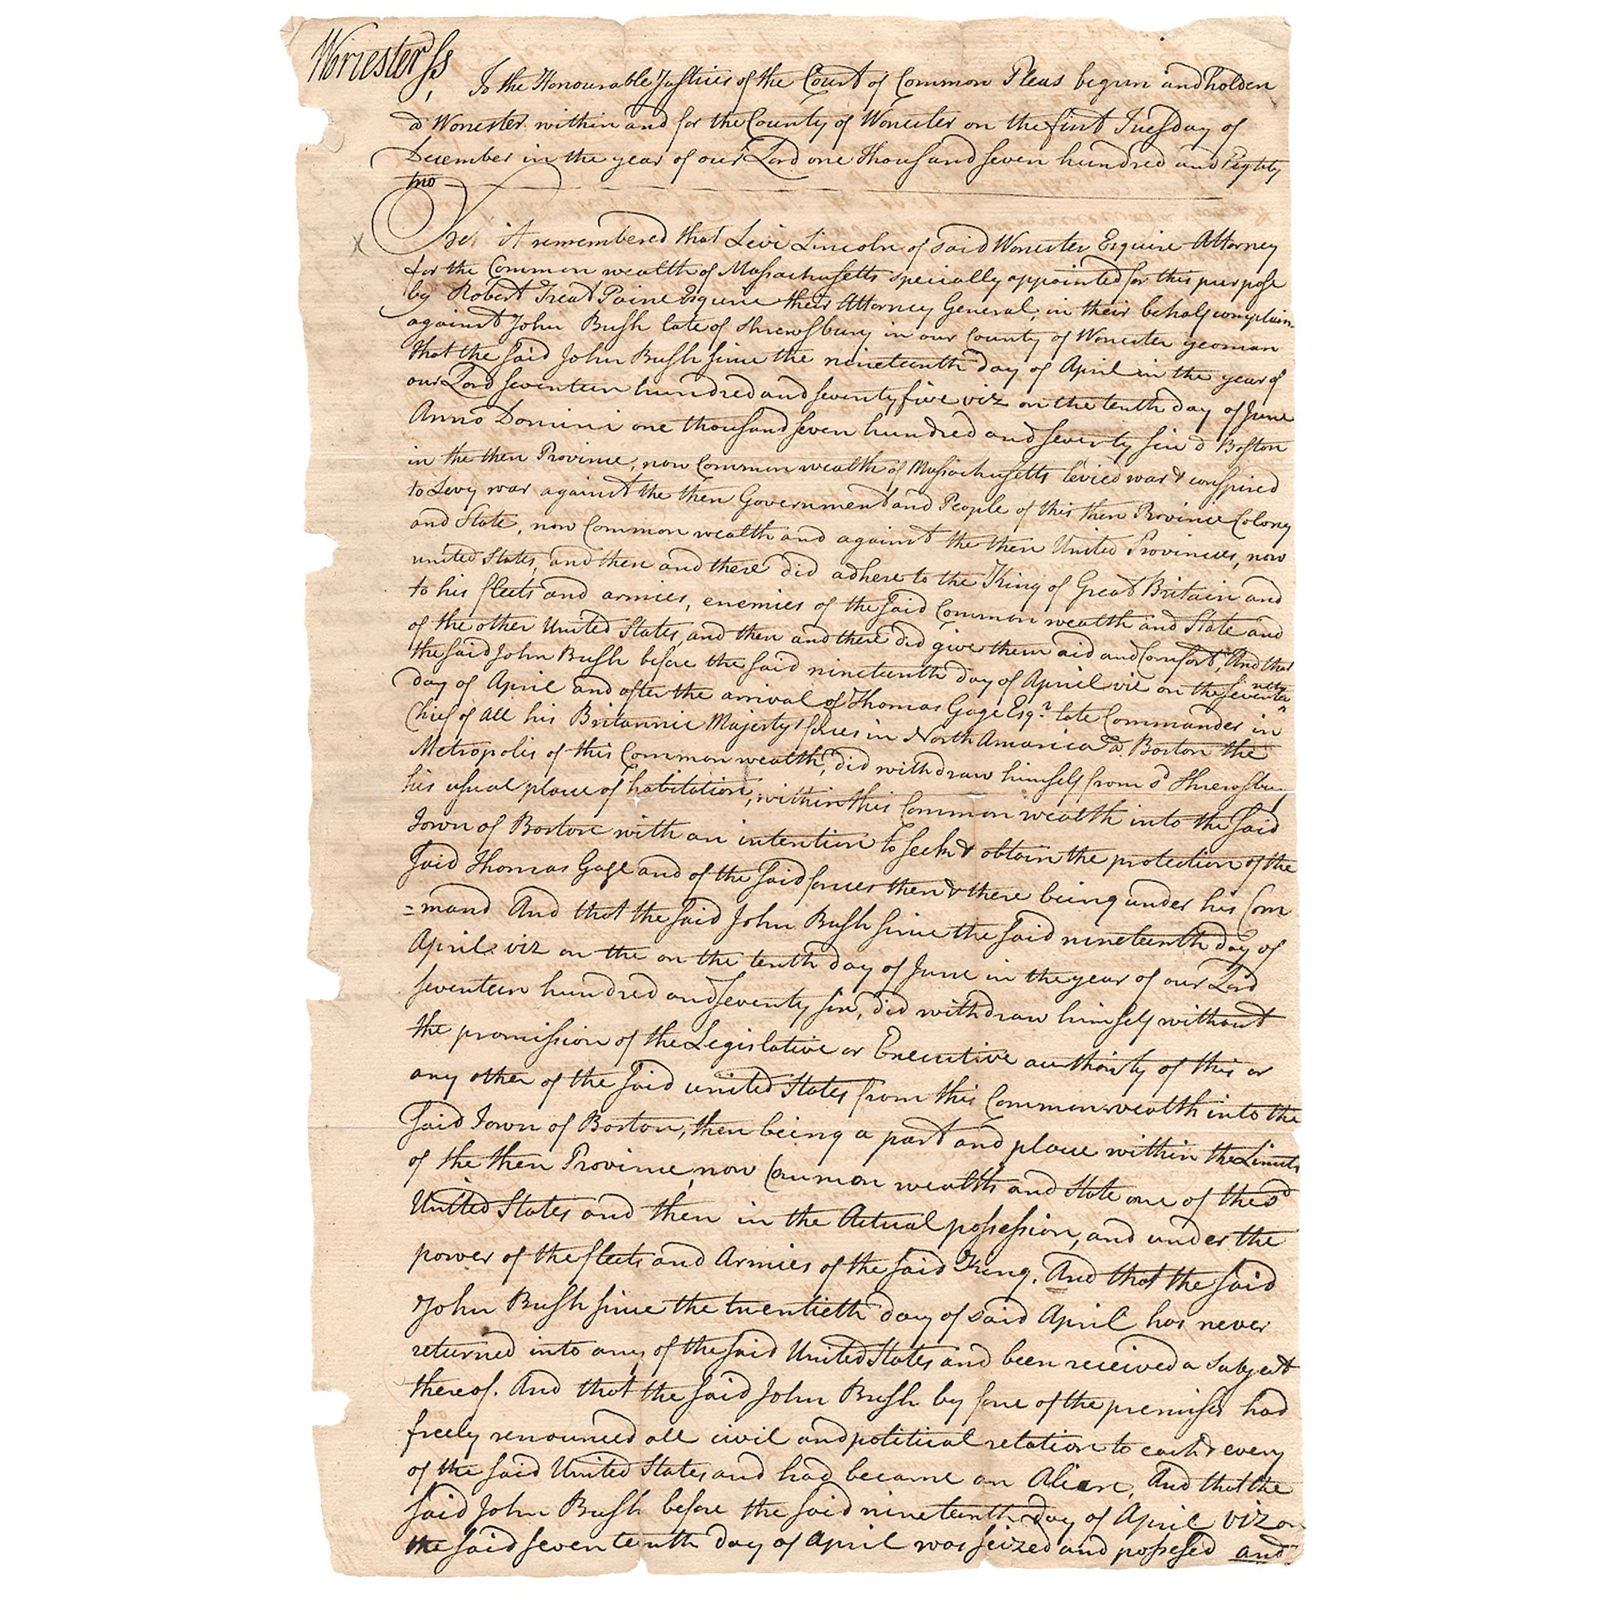 Worcester ss,
To the Honourable Justices of the Court of Common Pleas begun and holden
at Worcester within and for the County of Worcester on the first Tuesday of
December in the year of our Lord one thousand seven hundred and Eighty
two
Be it remembered that Levi Lincoln of said Worcester Esquire Attorney
for the Common wealth of Massachusetts specially appointed for this purpose
by Robert Treat Paine Esquire their Attorney General, in their behalf complain
against John Bush late of Shrewsbury in our County of Worcester yeoman
that the said John Bush since the nineteenth day of April in the year of
our Lord seventeen hundred and seventy five viz on the tenth day of June
Anno Domini one thousand seven hundred and seventy six at Boston
in the then Province, now Common wealth of Massachusetts levied war & conspired
to Levy war against the then Government and People of this then Province Colony
and State, now Common wealth and against the then United Provinces, now
united States, and then and there did adhere to the King of Great Britain and
to his fleets and armies, enemies of the said Common wealth and State and
of the other United States, and then and there did give them aid and Comfort, And that
the said John Bush before the said nineteenth day of April viz on the seventeenth
day of April and after the arrival of Thomas Gage Esqr. late Commander in
Chief of All his Britannic Majesty's forces in North America at Boston the
Metropolis of this Common wealth, did withdraw himself from sd Shrewsbu
his usual place of habitation, within this Common wealth into the said
Town of Boston with an intention to seek & obtain the protection of the
said Thomas Gage and of the said forces then & there being under his Com
=mand And that the said John Bush since the said nineteenth day of
April viz on the on the tenth day of June in the year of our Lord
seventeen hundred and seventy six, did withdraw himself without
the promission of the Legislative or Executive authority of this or
any other of the said united States from this Common wealth into the
said Town of Boston, then being a part and place within the Limits
of the then Province now Common wealth and State one of the sd
United States and then in the Actual possession, and under the
power of the fleets and Armies of the said King. And that the said
John Bush since the twentieth day of said April has never
returned into any of the said United States and been received a Subject
thereof. And that the said John Bush by force of the premises had
freely renounced all civil and political relation to each & every
of the said United States, and had became an Alien, And that the
said John Bush before the said nineteenth day of April viz on
the said seventeenth day of April was seized and possesed and